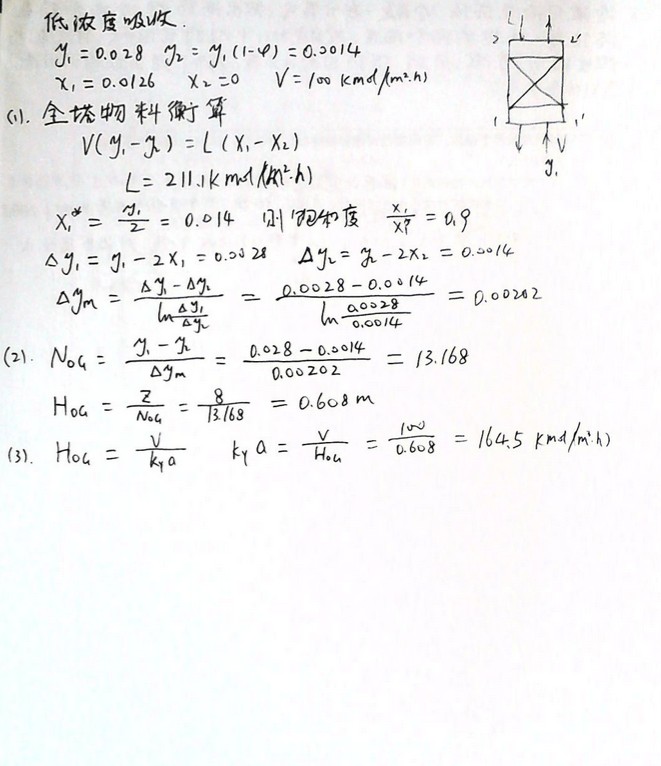 低浓度吸收.
y₁ = 0.028 y₂ = y₁(1-φ) = 0.0014
x₁ = 0.0126 x₂ = 0 V = 100 kmol/(m².h)
(1). 全塔物料衡算
V(y₁ - y₂) = L(x₁ - x₂)
L = 211.1 kmol/(m².h)
x₁* = y₁/2 = 0.014 则饱和度 x₁/x₁* = 0.9
Δy₁ = y₁ - 2x₁ = 0.0028 Δy₂ = y₂ - 2x₂ = 0.0014
Δym = (Δy₁ - Δy₂)/(ln Δy₁/Δy₂) = (0.0028 - 0.0014)/(ln 0.0028/0.0014) = 0.00202
(2). NOG = (y₁ - y₂)/Δym = (0.028 - 0.0014)/0.00202 = 13.168
HOG = Z/NOG = 8/13.168 = 0.608 m
(3). HOG = V/kya kya = V/HOG = 100/0.608 = 164.5 kmol/(m³.h)
L
2 2'
1 1'
V
y₁